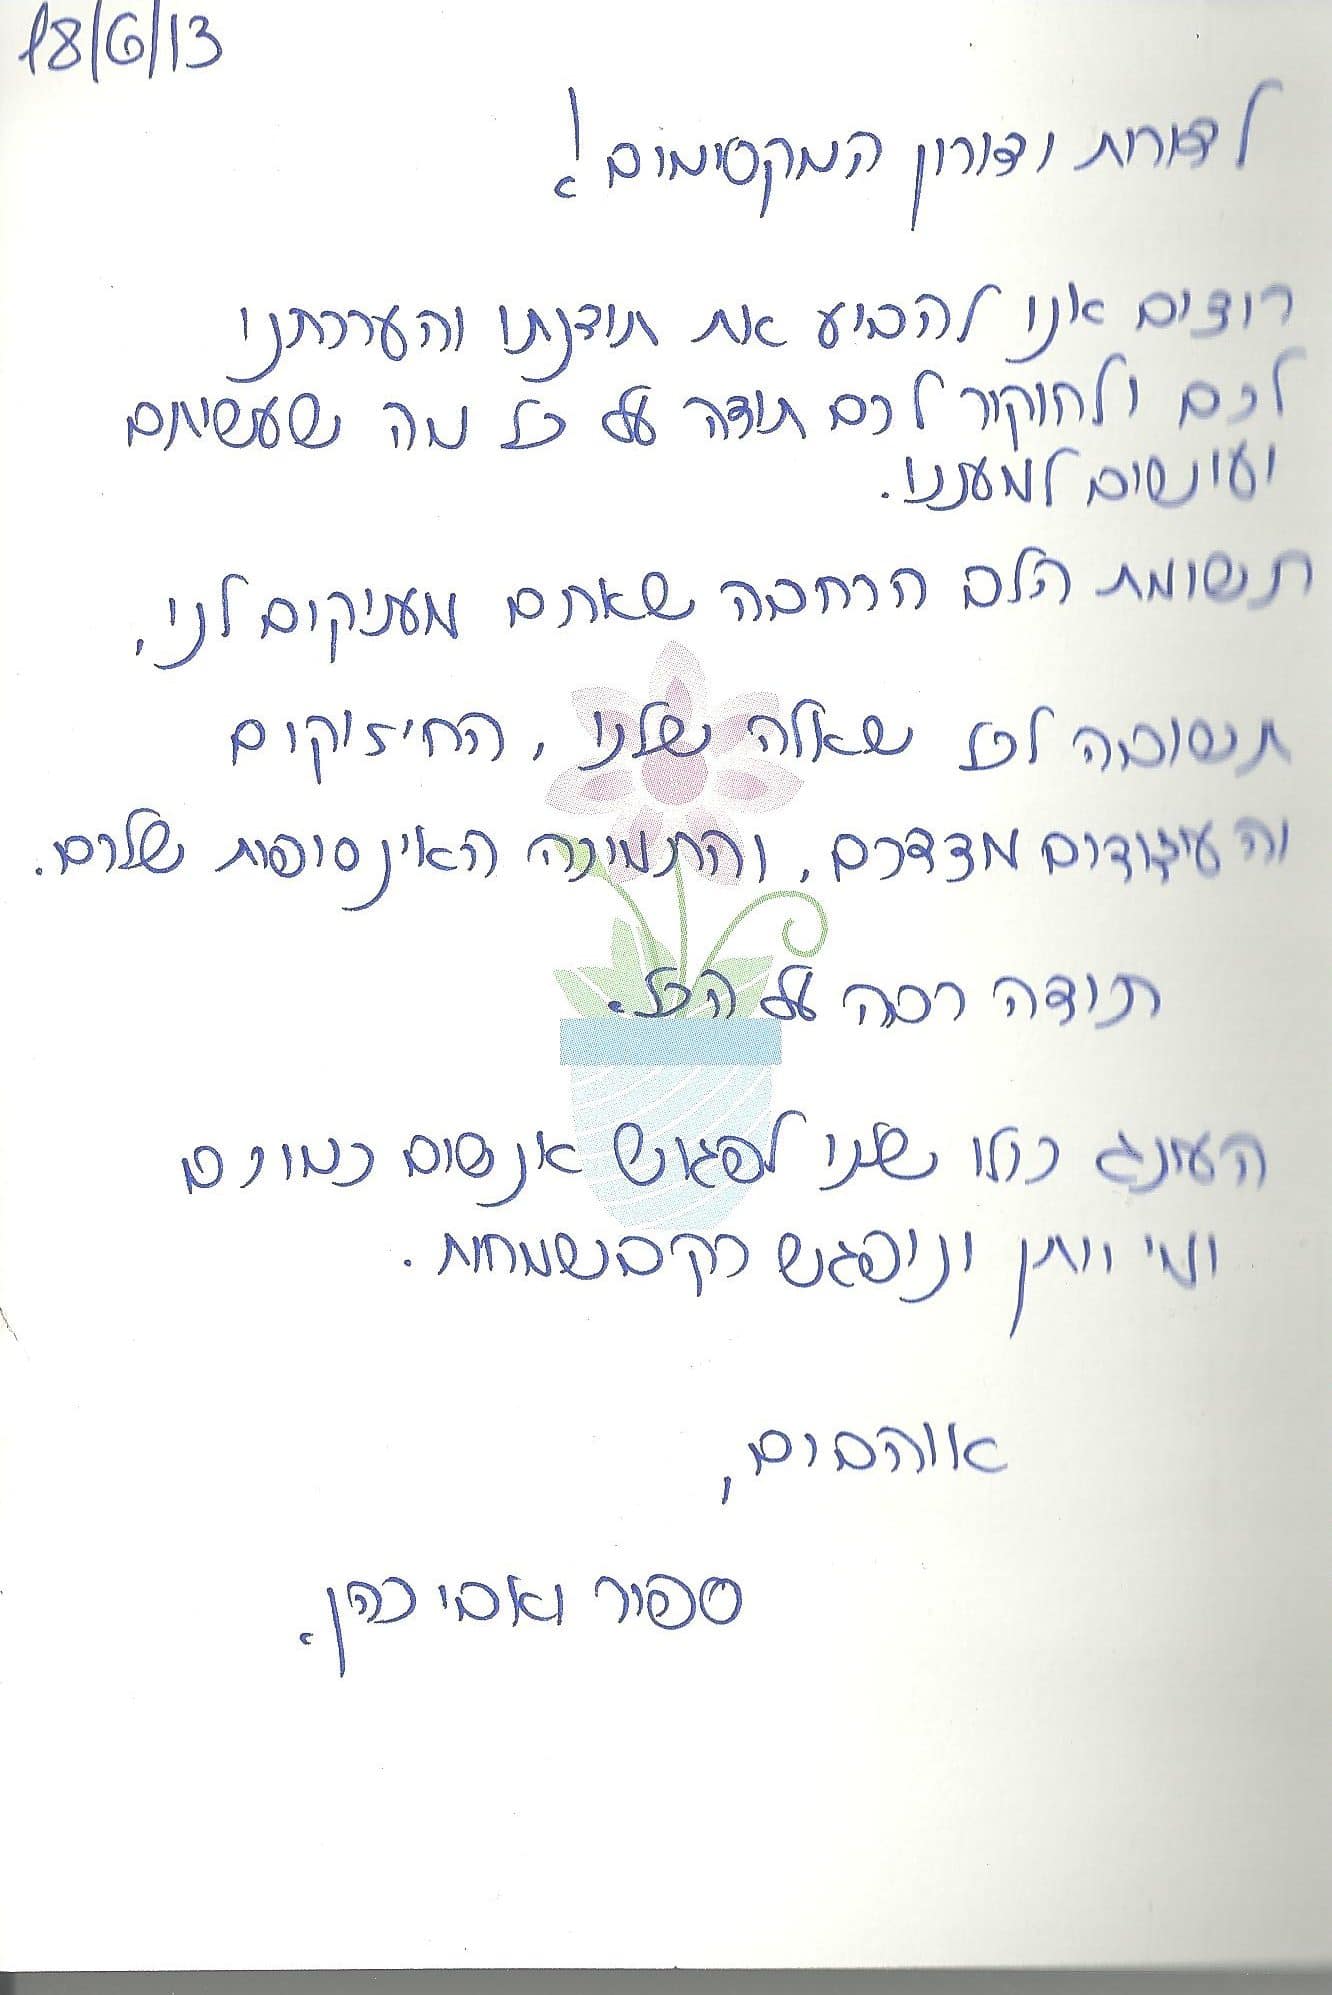 18/6/13
לדורית ודורון המקסימים!
רוצים אנו להביע את תודתנו והערכתנו
לכם ולהוקיר לכם תודה על כל מה שעשיתם
ועושים למעננו.
תשומת הלב הרחבה שאתם מעניקים לנו,
תשובה לכל שאלה שלנו, החיזוקים
והעידודים מצדכם, והתמיכה האינסופית שלכם.
תודה רבה על הכל.
העונג כולו שלנו לפגוש אנשים כמוכם
ומי ייתן וניפגש רק בשמחות.
אוהבים,
ספיר ואבי כהן.